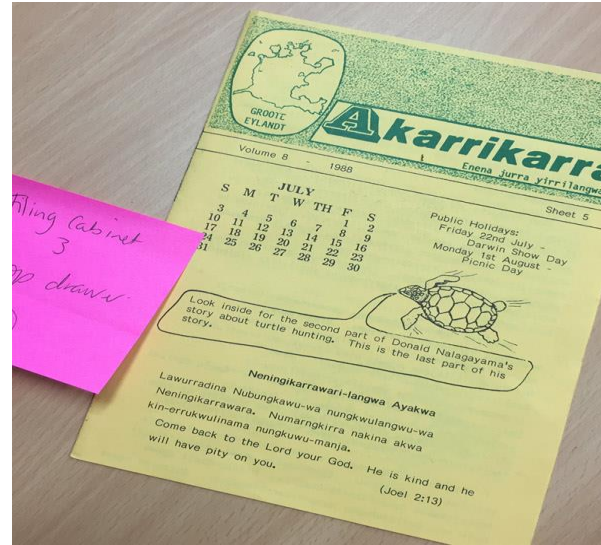 GROOTE
EYLANDT
Akarrikarra
Enena jurra yirrilangwa
Volume 8 - 1988
Sheet 5
JULY
S M T W TH F S
1 2
3 4 5 6 7 8 9
10 11 12 13 14 15 16
17 18 19 20 21 22 23
24 25 26 27 28 29 30
31
Public Holidays:
Friday 22nd July -
Darwin Show Day
Monday 1st August -
Picnic Day
Look inside for the second part of Donald Nalagayama's
story about turtle hunting. This is the last part of his
story.
Neningikarrawari-langwa Ayakwa
Lawurradina Nubungkawu-wa nungkwulangwu-wa
Neningikarrawara. Numarngkirra nakina akwa
kin-errukwulinama nungkuwu-manja.
Come back to the Lord your God. He is kind and he
will have pity on you.
(Joel 2:13)
Filing Cabinet
3
drawer.